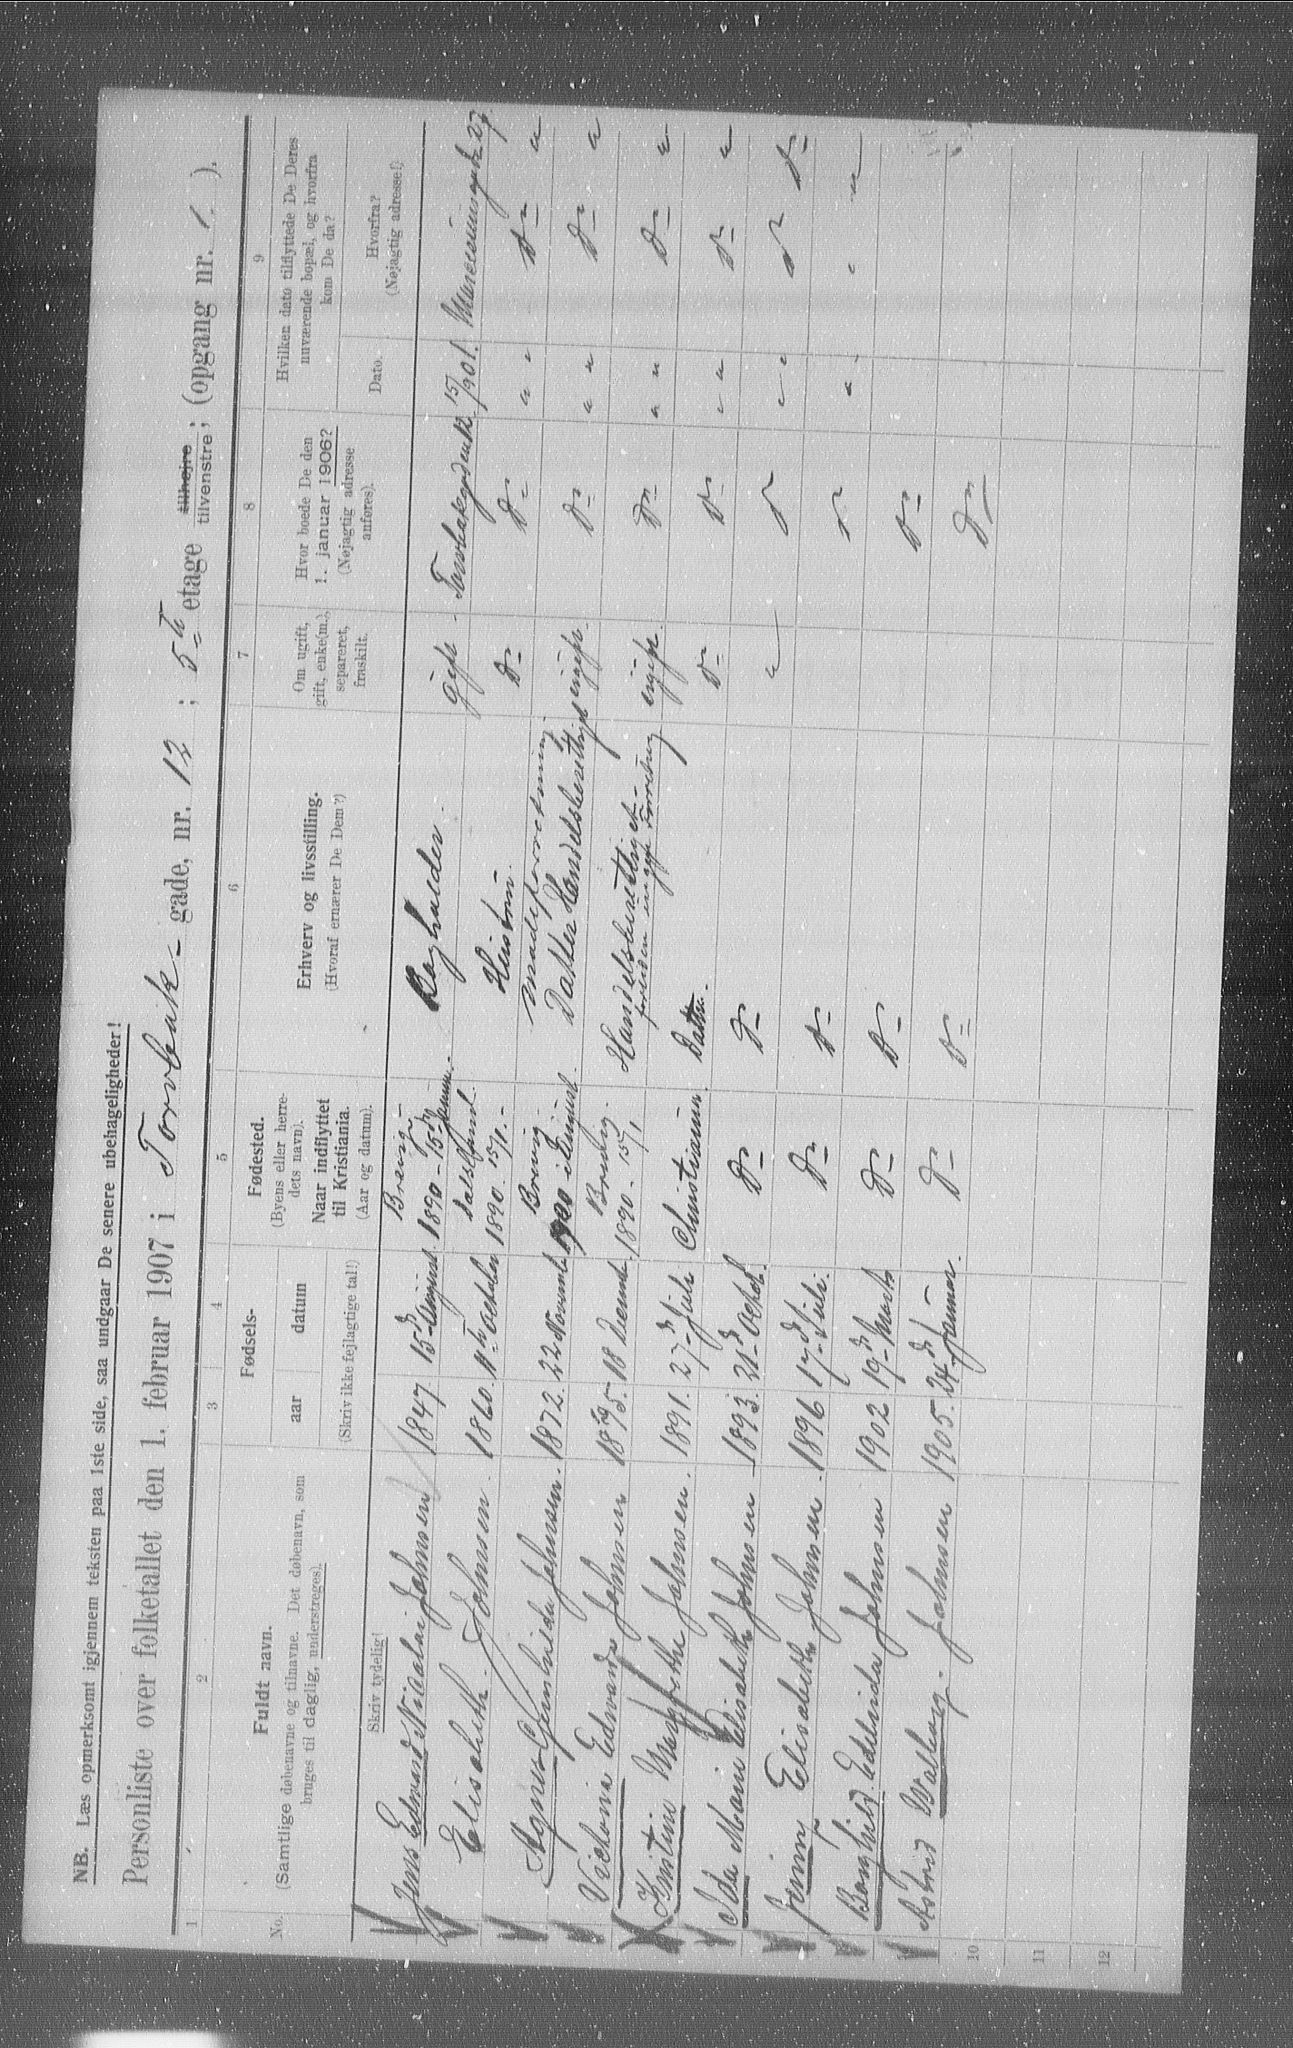 NB. Læs opmerksomt igjennem teksten paa 1ste side, saa undgaar De senere ubehageligheder!
Personliste over folketallet den 1. februar 1907 i Torvbak- gade, nr. 12 ; 5te etage tilhøjre tilvenstre; (opgang nr. 1. ).
1 2 3 4 5 6 7 8 9
No.
Fuldt navn.
(Samtlige døbenavne og tilnavne. Det døbenavn, som
bruges til daglig, understreges).
Skriv tydelig!
Fødsels-
aar datum
(Skriv ikke fejlagtige tal!)
Fødested.
(Byens eller herre-
dets navn).
Naar indflyttet
til Kristiania.
(Aar og datum).
Erhverv og livsstilling.
(Hvoraf ernærer De Dem?)
Om ugift,
gift, enke(m.),
separeret,
fraskilt.
Hvor boede De den
1. januar 1906?
(Nøjagtig adresse
anføres).
Hvilken dato tilflyttede De Deres
nuværende bopæl, og hvorfra
kom De da?
Dato.
Hvorfra?
(Nøjagtig adresse!)
Jens Edvard Nicolai Johnsen 1847. 15d August. Brevig 1890-15d Januar. Bogholder. gift. 15/ 1901.
Elisabeth Johnsen. 1860. 11te October 1890. 15/1.- Hustru D- D- " " D- "
Agnes Gunhilda Johnsen. 1872. 22 Novemb. Brevig 1900 i August. Datter Handelsberettiget ugift. D- " " D- "
Victoria Edvarda Johnsen 1875. 18 Decemb. Brevig. 1890. 15/1 Handelsberettiget ugift. D- " " D- "
Kristine Johnsen. 1891. 27d Juli Christiania. Datter. D- D- " " D- "
Ida Marie Elisabeth Johnsen 1893. 21d Octob. D- D- "
Jenny Elisabeth Johnsen. 1896 17d Juli. D- D- " "
Borghild Johnsen 1902 19d Marts D- D- D-
Astrid Walborg. Johnsen 1905. 24d Januar. D- D- D-
10
11
12